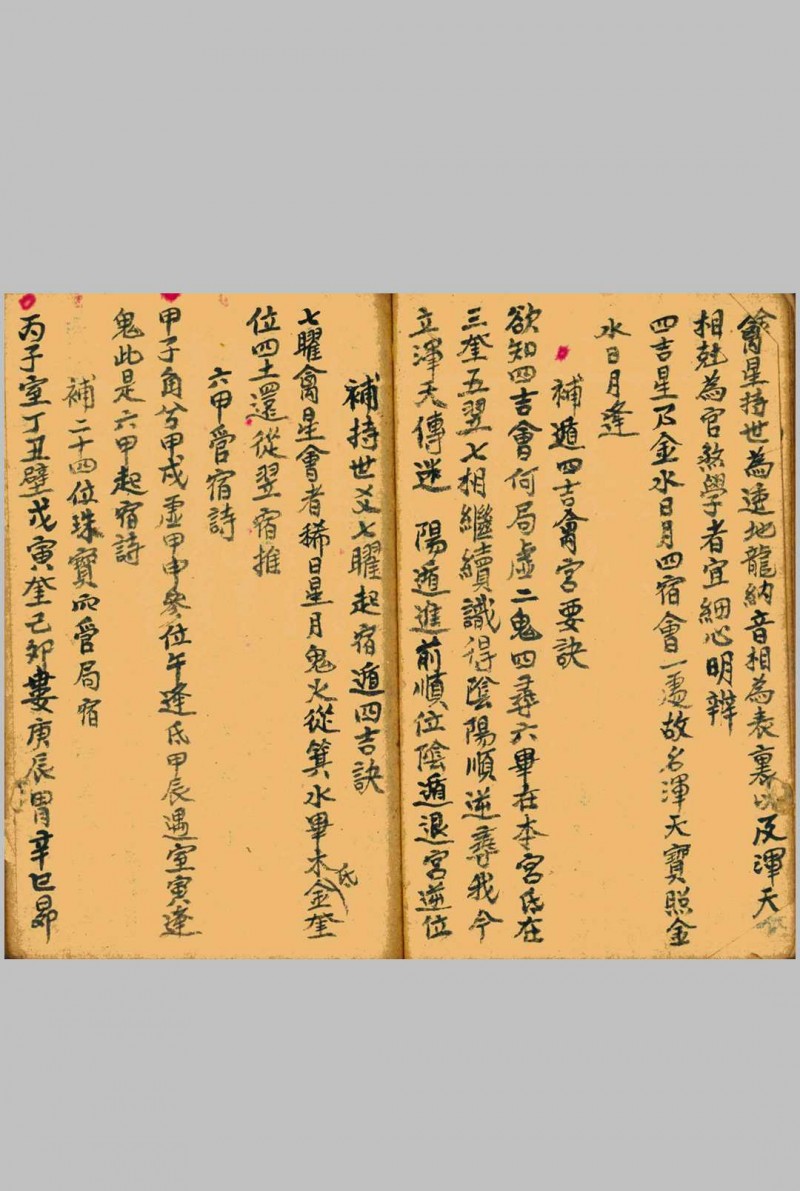 禽星持世為速地龍納音相為表裏以及渾天
相尅為官煞學者宜細心明辨
四吉星乃金水日月四宿會一處故名渾天寶照金
水日月逢
補遁四吉禽宮要訣
欲知四吉會何局虛二鬼四尋六畢在本宮氐在
三奎五翌七相繼續識得陰陽順逆尋我今
立渾天傳迷 陽遁進前順位陰遁退宮逆位
補持世爻七曜起宿遁四吉訣
七曜禽星會者稀日星月鬼火從箕水畢木氐金奎
位四土還從翌宿推
六甲管宿詩
甲子角兮甲戌虛甲申參位午逢氐甲辰遇室寅逢
鬼此是六甲起宿詩
補二十四位珠寶而管局宿
丙子室丁丑壁戊寅奎己卯婁庚辰胃辛巳昴